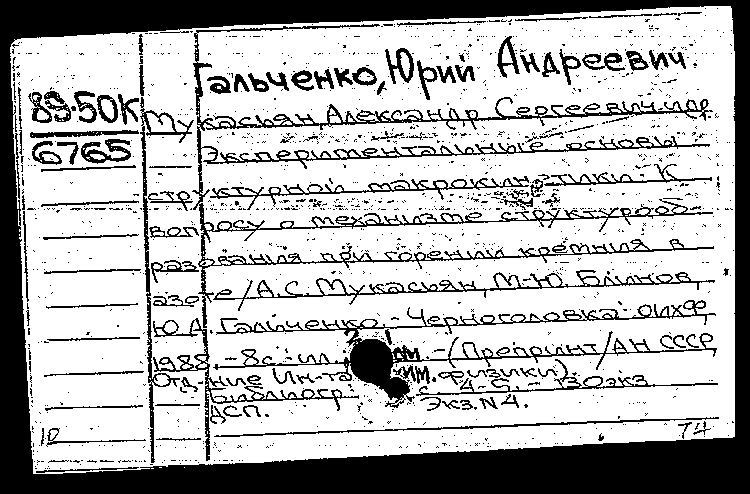 Гальченко, Юрий Андреевич.
89-50К
6765
Мукасьян, Александр Сергеевич и др.
Экспериментальные основы
структурной макрокинетики. К
вопросу о механизме структурооб-
разования при горении кремния в
азоте / А.С. Мукасьян, М.Ю. Блинов,
Ю.А. Гальченко. - Черноголовка: ОИХФ,
1988. - 8 с.: ил.; 21 см. - (Препринт / АН СССР,
Отд-ние Ин-та хим. физики).
Библиогр.: с. 4-5. - 130 экз.
ДСП. Экз. N 4.
10
74